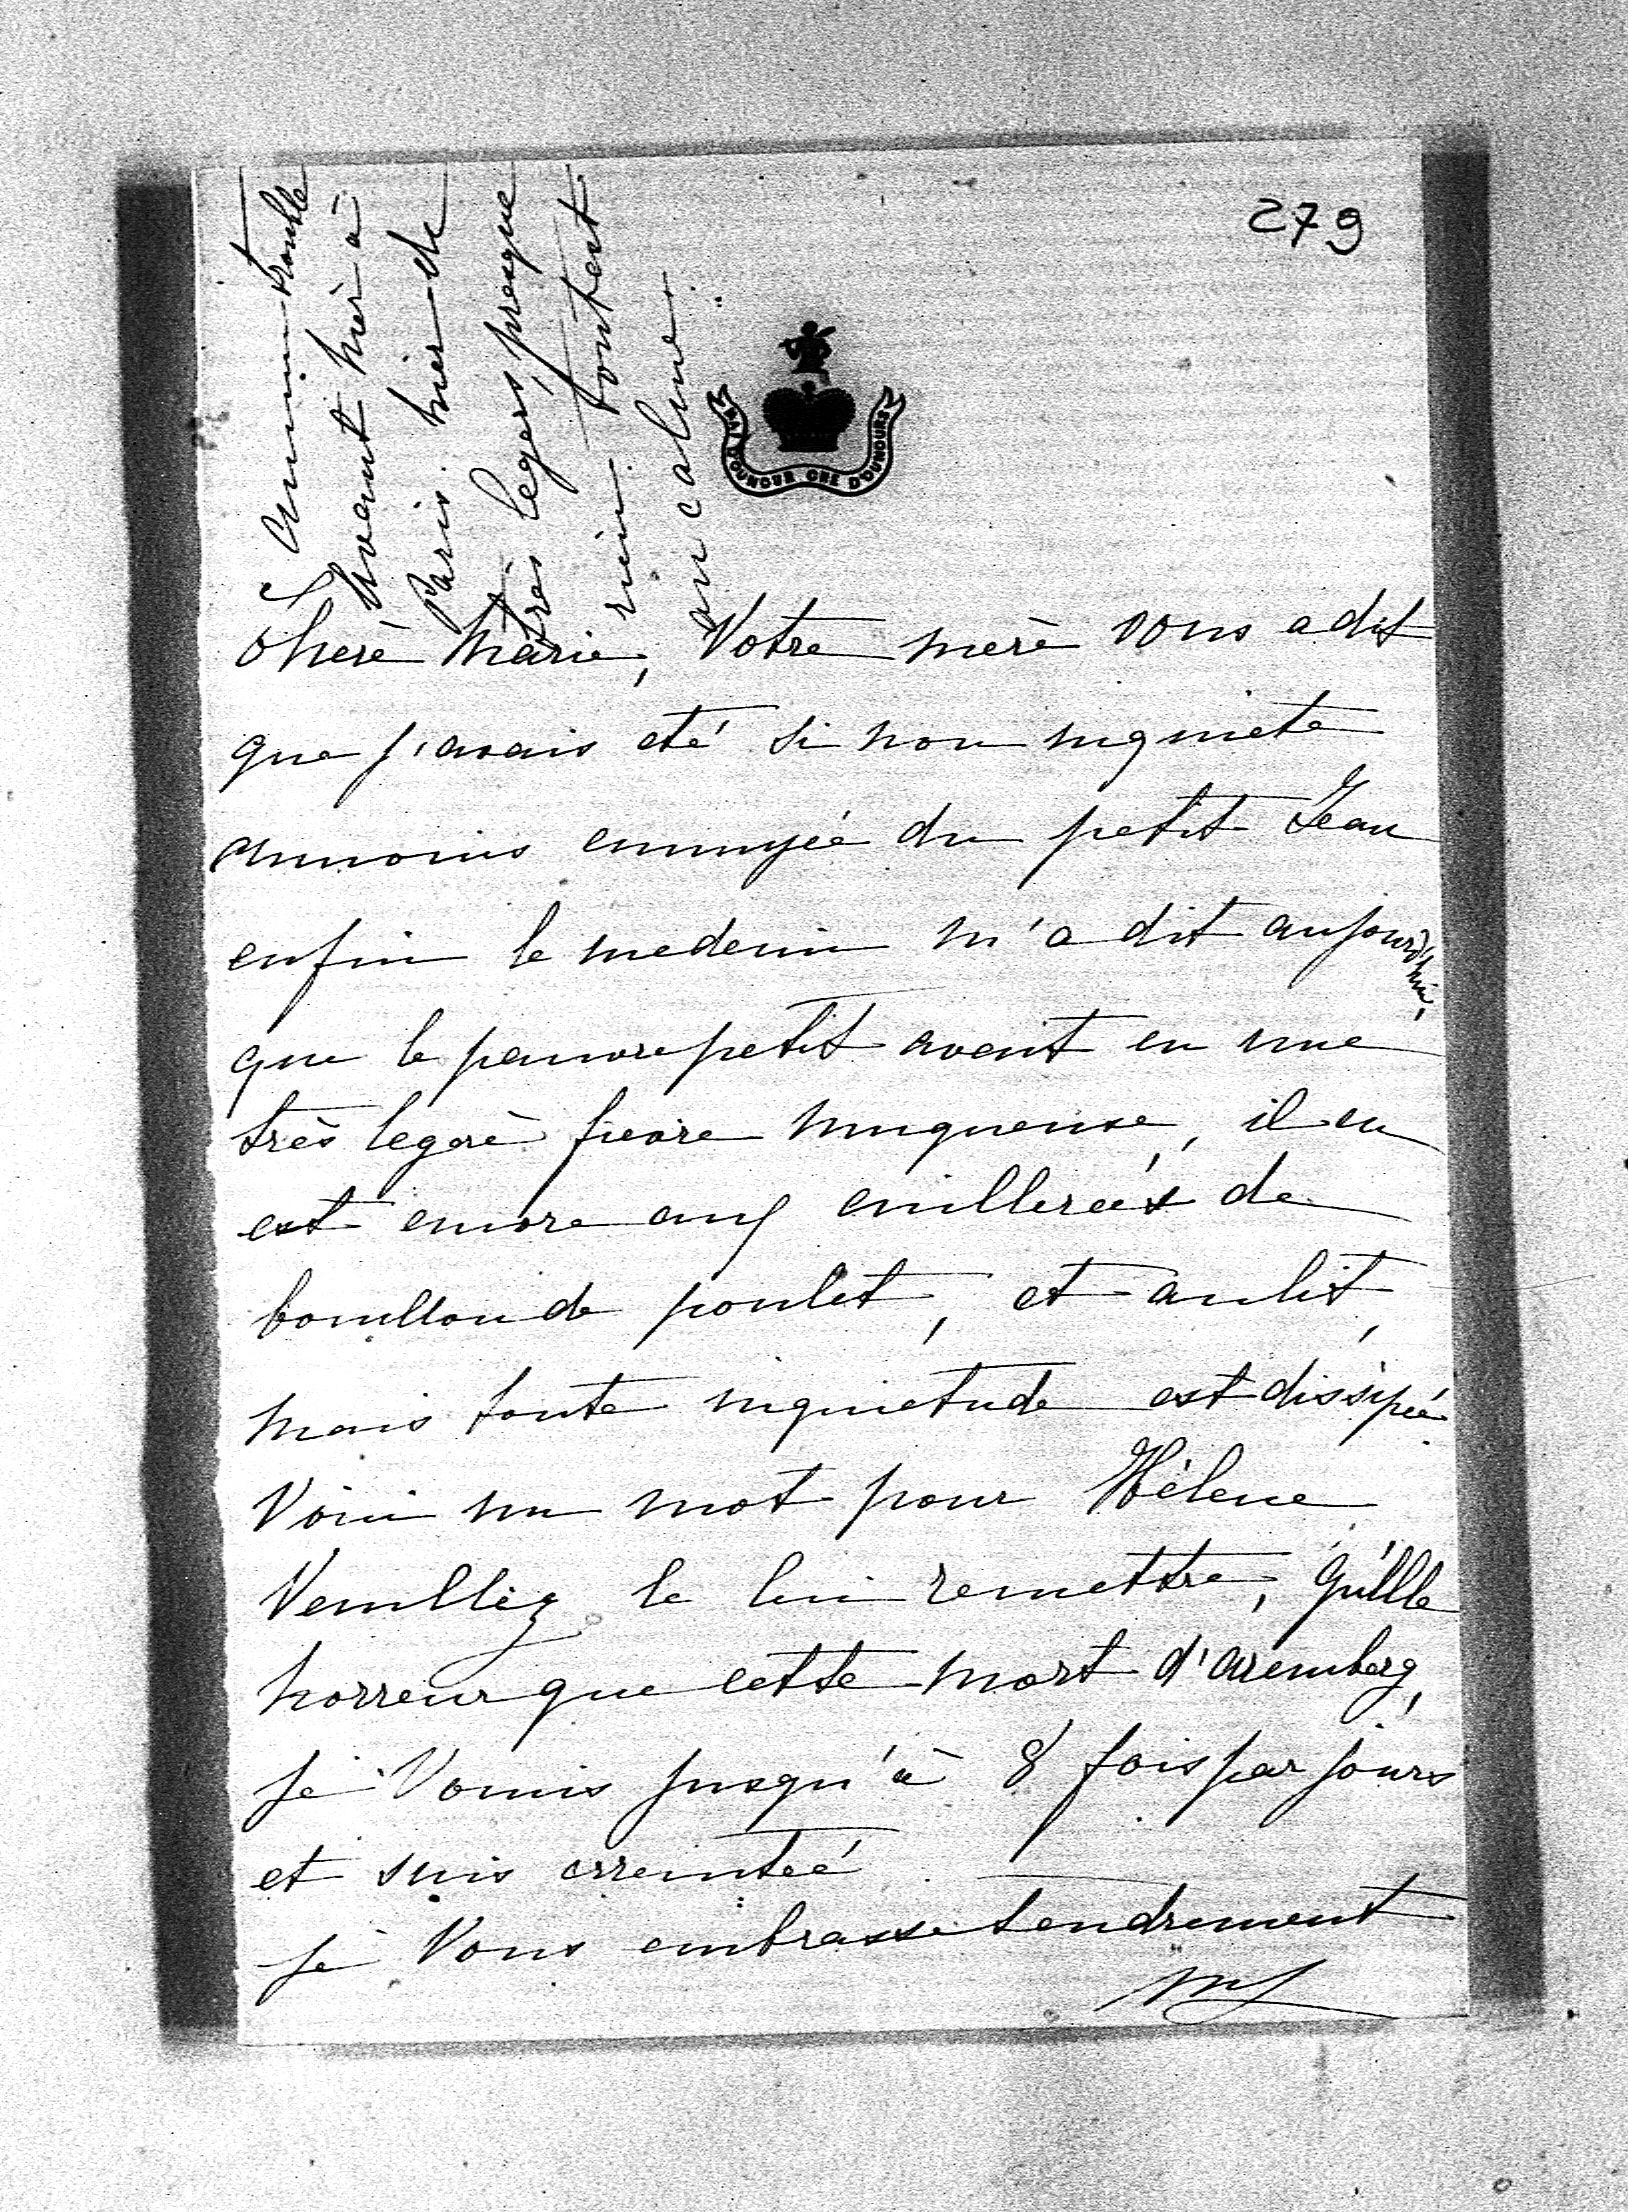 279
MAI D'OUNOUR QUE D'OUNOURS
Chere Marie, Votre mère vous a dit
que j'avais eté si non inquiete
aumoins ennuyée du petit Jean
enfin le medecin m'a dit aujourd'hui,
que le pauvre petit avait eu une
très legerè fievre muqueuse, il en
est encore aux cuillereés de
bouillon de poulet, et au lit,
mais toute inquietude est dissipée
Voici un mot pour Hélène
Veuillez le lui remettre, Qu'lle
horreur que cette mort d'Aremberg,
je Vomis jusqu'à 8 fois par jours
et suis erreinteé
je Vous embrasse tendrement
Aucun trouble
avant hier à
Paris. hier de
très legers presque
rien. tout est
au calme.